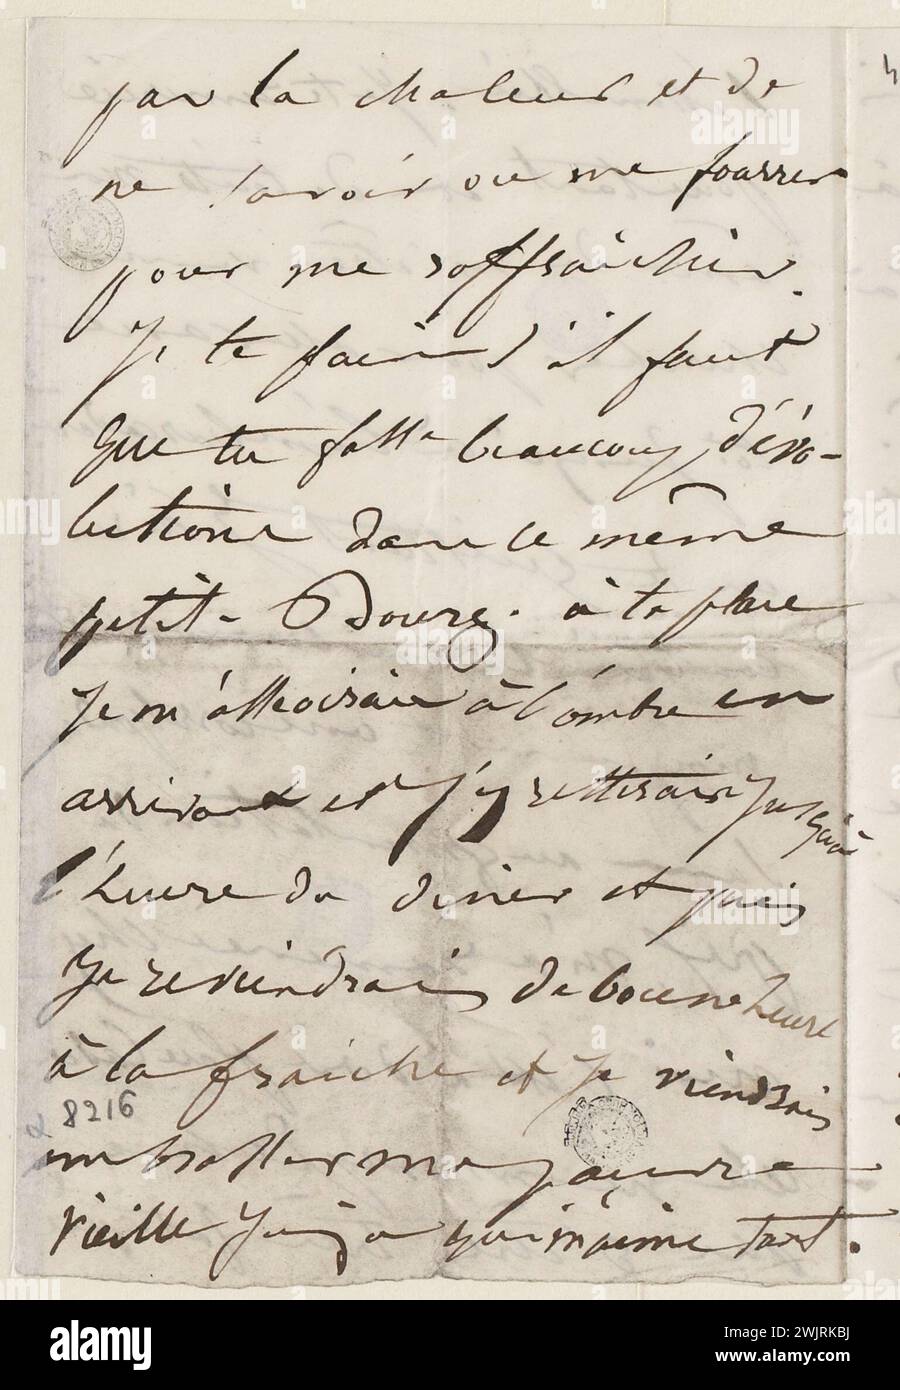 par la chaleur et de
ne savoir ou me fourrer
pour me raffraichir.
Je te fais s'il faut
que tu fasse beaucoup d'évo-
lutions dans ce même
petit-Bourg. à ta place
Je m'asseoirais à l'ombre en
arrivant et j'y resterais jusqu'à
l'heure du diner et puis
Je reviendrais de bonne heure
à la fraiche et je viendrais
embrasser ma pauvre
vieille Juju qui m'aime tant.
8216
alamy
Image ID: 2WJRKBJ
www.alamy.com